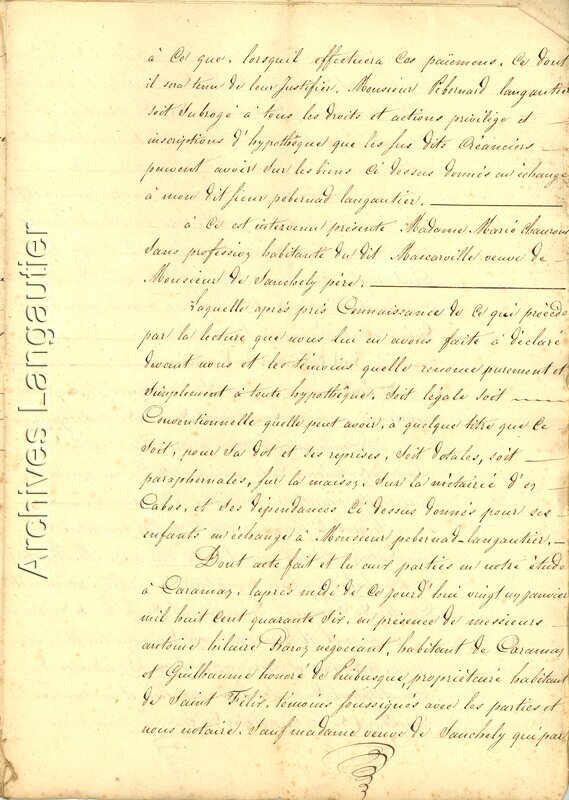 à ce que, lorsquil effectuera ces païemens, ce dont
il sera tenu de leur Justifier, Monsieur Pebernard langautier
soit Subrogé à tous les droits et actions privilège et
inscriptions d'hypothêque que les sus dits Créanciers
peuvent avoir sur les biens ci dessus donnés en échange
à mon dit sieur pebernad langautier.
à ce est intervenu présente Madame Marie
Sans profession habitante du dit Mascarville veuve de
Monsieur de Sanchely père.
Laquelle après pris Connaissance de ce qui précède
par la lecture que nous lui en avons faite à déclaré
devant nous et les témoins quelle renonce purement et
simplement à toute hypothêque, soit légale soit
Conventionnelle quelle peut avoir, à quelque titre que ce
soit, pour sa dot et ses reprises, soit dotales, soit
paraphernales, sur la maison, sur la métairié d'en
Cabos, et ses dépendances ci dessus donnés pour ses
enfants en échange à Monsieur pebernad-langautier.
Dont acte fait et lu aux parties en notre étude
à Caraman, laprès midi de ce jourd'hui vingt un janvier
mil huit cent quarante six, en présence de messieurs
antoine hilaire négociant, habitant de Caraman
et Guilhaume honoré de Puibusque, propriétaire habitant
de Saint Félix, témoins soussignés avec les parties et
nous notaire. Sauf madame veuve de Sanchely qui par
Archives Langautier